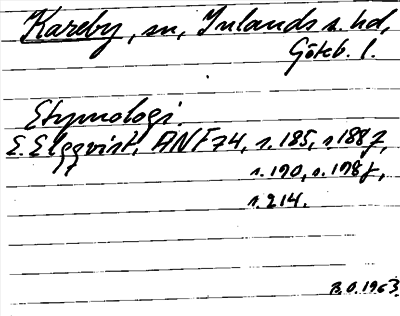 Kareby, sn, Inlands s. hd,
Göteb. l.
Etymologi.
E. Elgqvist, ANF 74, s. 185, s 188 f,
s. 190, s. 198 f,
s. 214.
B.O. 1963.